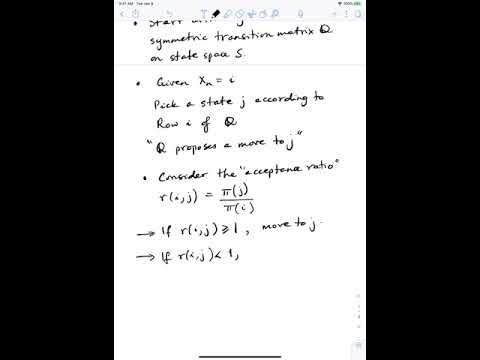 9:41 AM Tue Jan 9
• Start
symmetric transition matrix Q
on state space S.
• Given Xₙ = i
Pick a state j according to
Row i of Q
"Q proposes a move to j"
• Consider the "acceptance ratio"
r(i,j) = π(j)/π(i)
→ If r(i,j) ≥ 1, move to j.
→ If r(i,j) < 1,